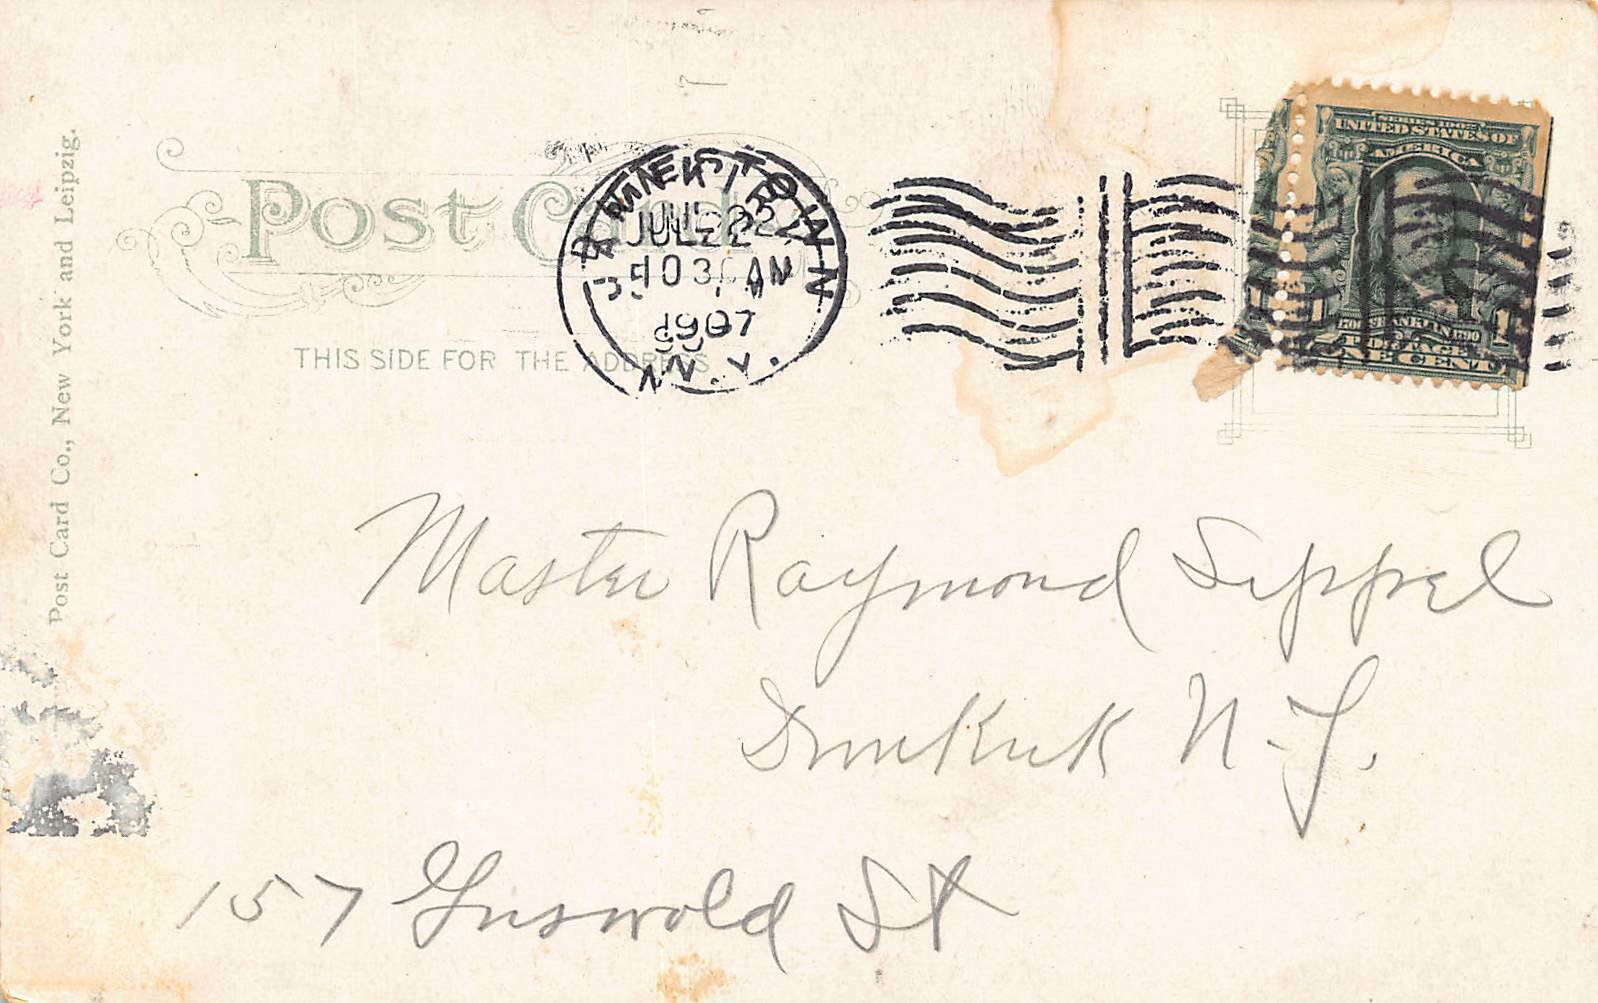 Post Card
THIS SIDE FOR THE ADDRESS
Post Card Co., New York and Leipzig.
JAMESTOWN
JUL 22
10 30 AM
1907
N.Y.
SERIES 1902
UNITED STATES OF
AMERICA
1 1
ONE CENT
Master Raymond Sippel
Dunkirk N.Y.
157 Griswold St